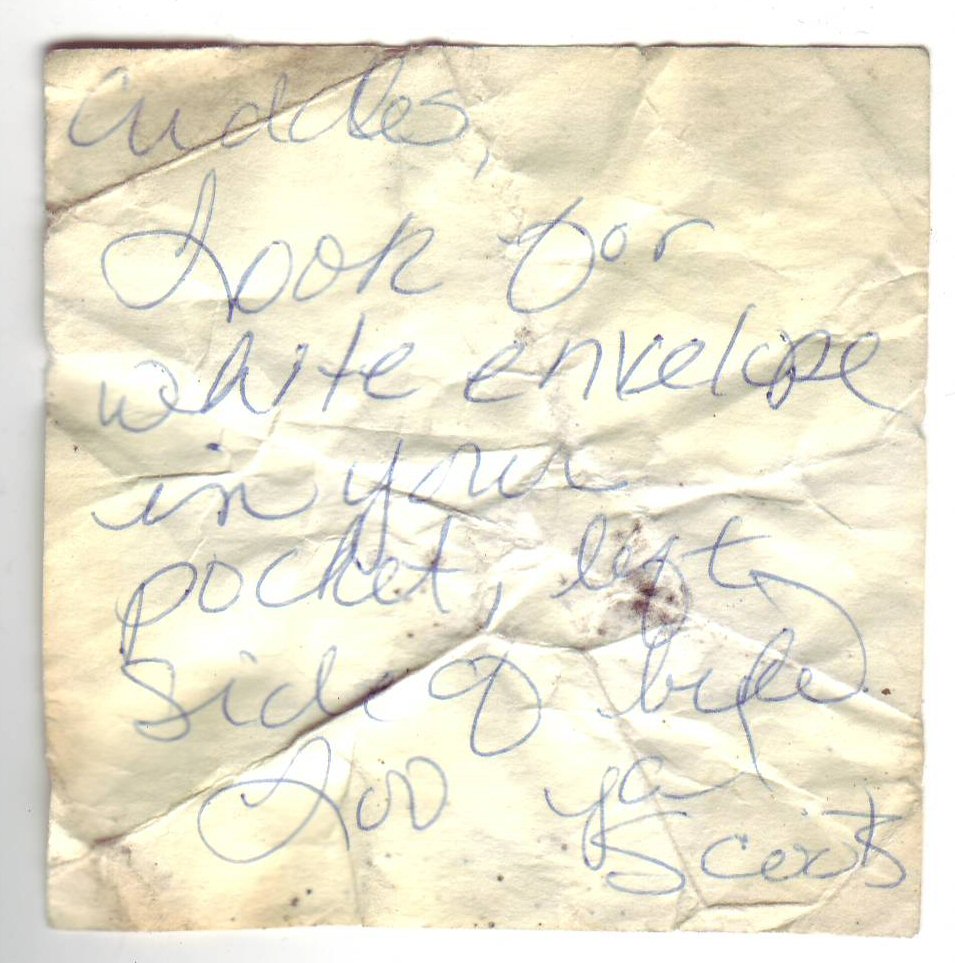 Cuddles,
Look for
white envelope
in your
pocket, left
side of bed
Luv ya